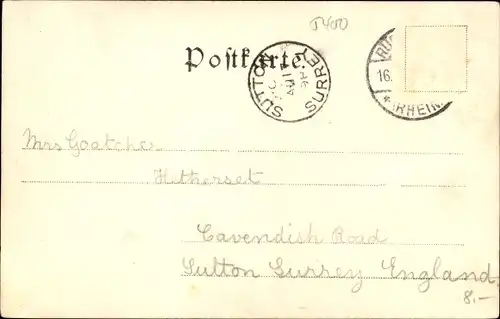 5400
Postkarte.
SUTTON SURREY
RÜD
16.
(RHEIN)
Mrs Goatcher
Hetherset
Cavendish Road
Sutton Surrey England.
8.-